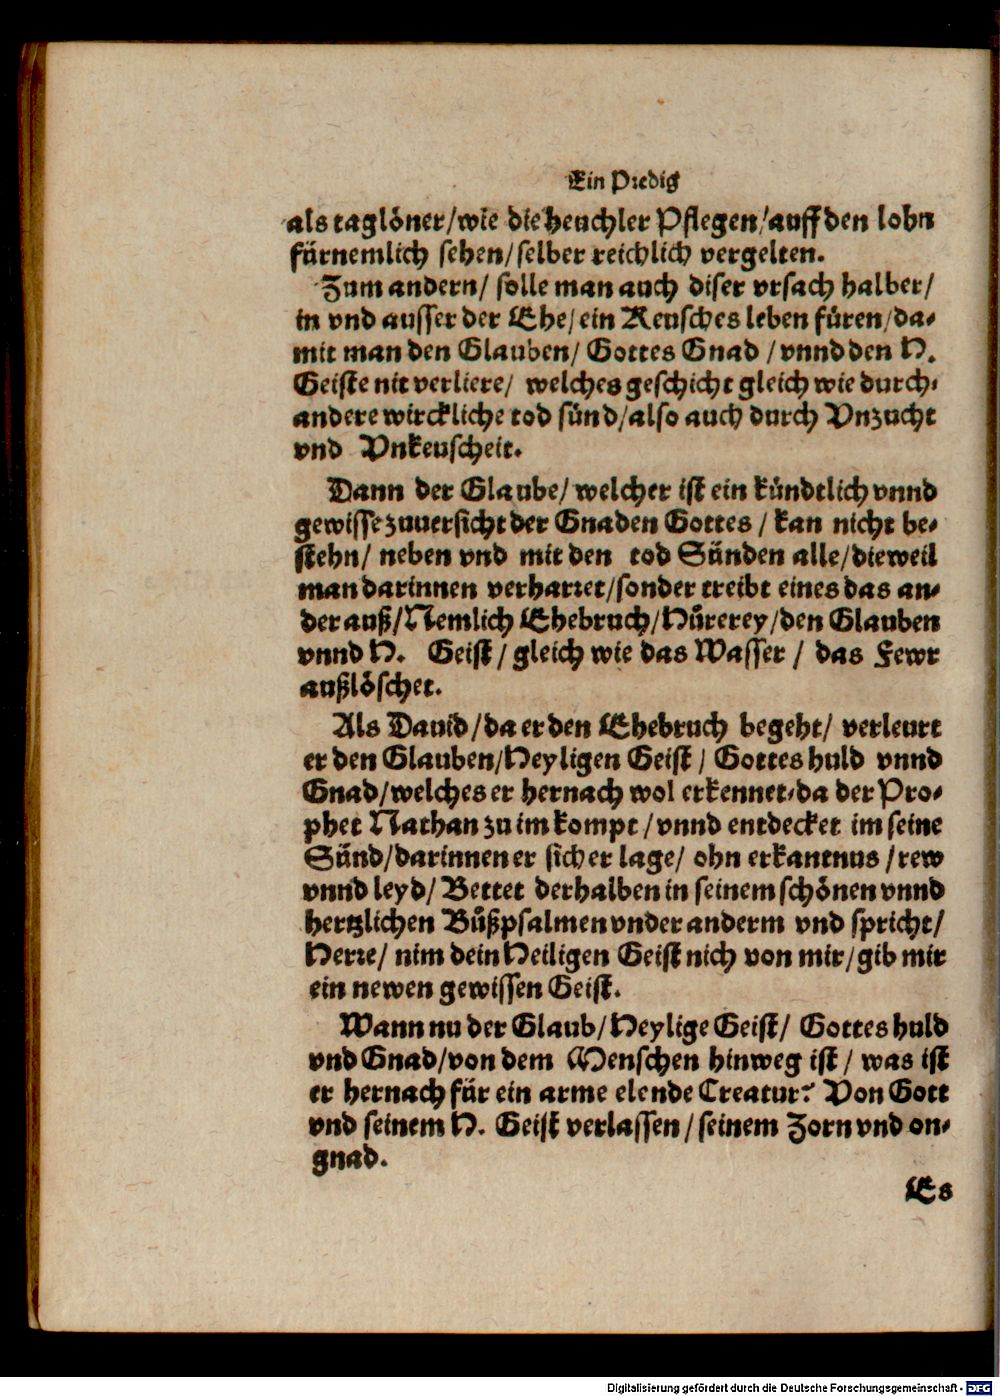 Ein Predig
als taglöner/wie die heuchler Pflegen/auff den lohn
fürnemlich sehen/selber reichlich vergelten.
Zum andern/ solle man auch diser vrsach halber/
in vnd ausser der Ehe/ein Keusches leben füren/da-
mit man den Glauben/ Gottes Gnad /vnnd den H.
Geiste nit verliere/ welches geschicht gleich wie durch-
andere wirckliche tod sünd/also auch durch Vnzucht
vnd Vnkeuscheit.
Dann der Glaube/welcher ist ein kündtlich vnnd
gewisse zuuersicht der Gnaden Gottes / kan nicht be-
stehn/ neben vnd mit den tod Sünden alle/dieweil
man darinnen verharret/sonder treibt eines das an-
der auß/Nemlich Ehebruch/Hůrerey/den Glauben
vnnd H. Geist/gleich wie das Wasser / das Fewr
außlöschet.
Als Dauid/da er den Ehebruch begeht/ verleurt
er den Glauben/Heyligen Geist / Gottes huld vnnd
Gnad/welches er hernach wol erkennet/da der Pro-
phet Nathan zu im kompt/vnnd entdecket im seine
Sünd/darinnen er sicher lage/ ohn erkantnus /rew
vnnd leyd/ Bettet derhalben in seinem schönen vnnd
hertzlichen Bůßpsalmen vnder anderm vnd spricht/
Herre/ nim dein Heiligen Geist nich von mir/gib mir
ein newen gewissen Geist.
Wann nu der Glaub/Heylige Geist/ Gottes huld
vnd Gnad/von dem Menschen hinweg ist/ was ist
er hernach für ein arme elende Creatur? Von Gott
vnd seinem H. Geist verlassen/seinem Zorn vnd on-
gnad.
Es
Digitalisierung gefördert durch die Deutsche Forschungsgemeinschaft - DFG